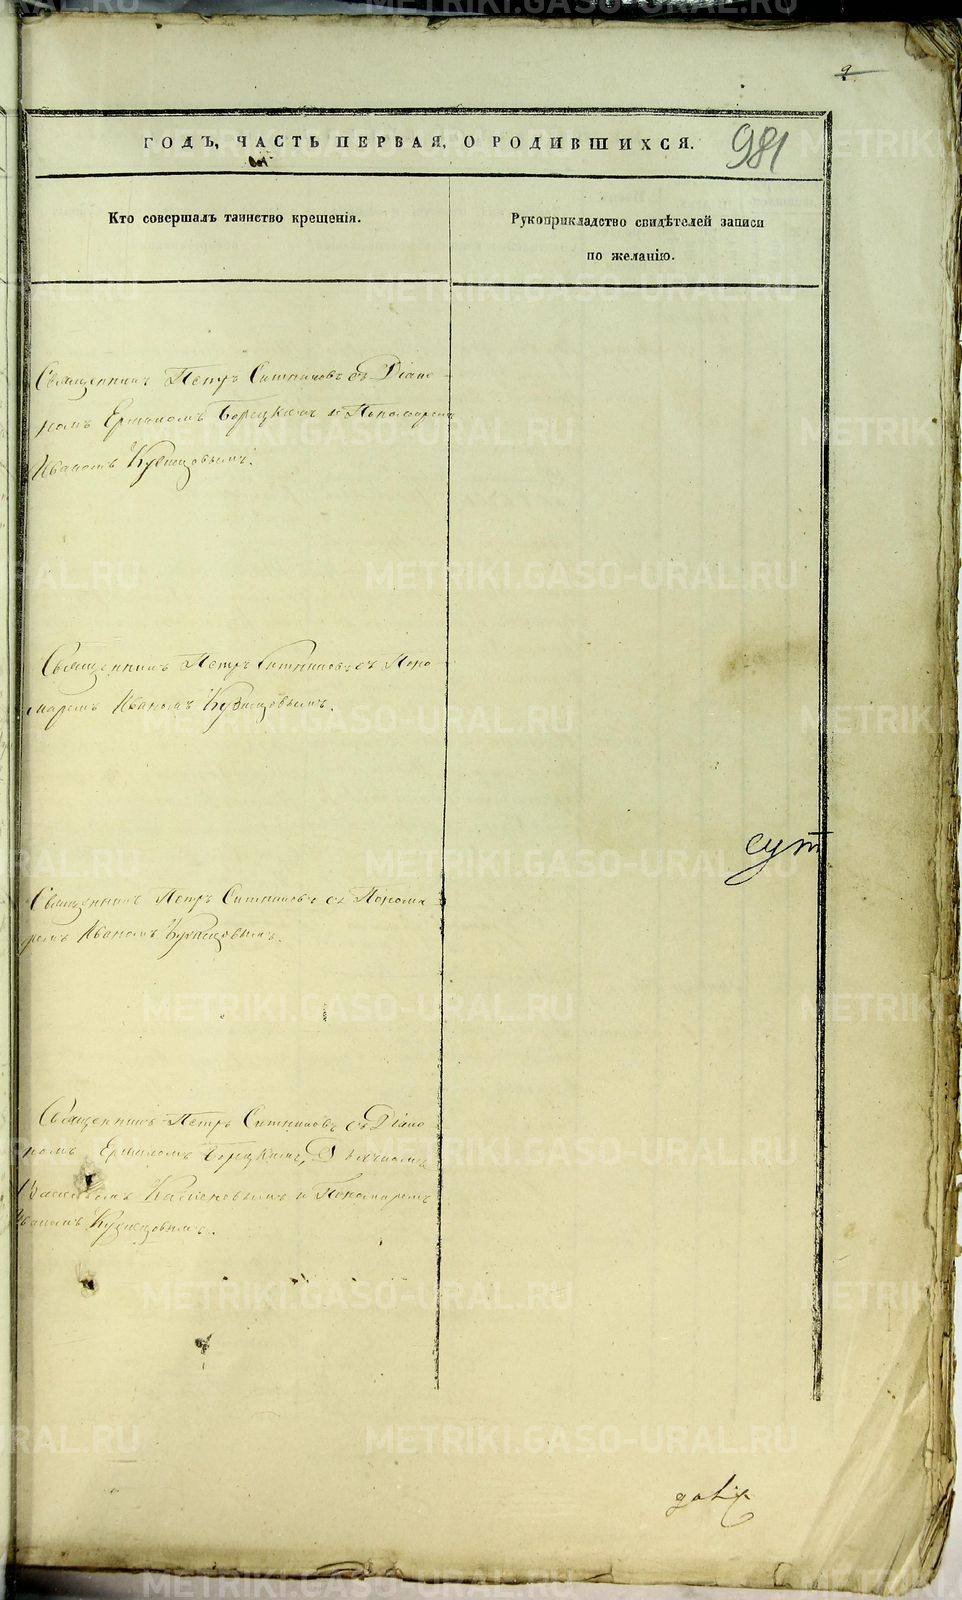 9
ГОДЪ, ЧАСТЬ ПЕРВАЯ, О РОДИВШИХСЯ.
981
Кто совершалъ таинство крещенія.
Рукоприкладство свидѣтелей записи
по желанію.
Священникъ Петръ Ситниковъ съ Діако-
номъ Ермиломъ Борецкимъ и Пономаремъ
Иваномъ Кузнецовымъ.
Священникъ Петръ Ситниковъ съ Поно
маремъ Иваномъ Кузнецовымъ.
сут
Священникъ Петръ Ситниковъ съ Понома
ремъ Иваномъ Кузнецовымъ.
Священникъ Петръ Ситниковъ съ Діако
номъ Ермиломъ Борецкимъ, Дьячкомъ
и Пономаремъ
Иваномъ Кузнецовымъ.
METRIKI.GASO-URAL.RU